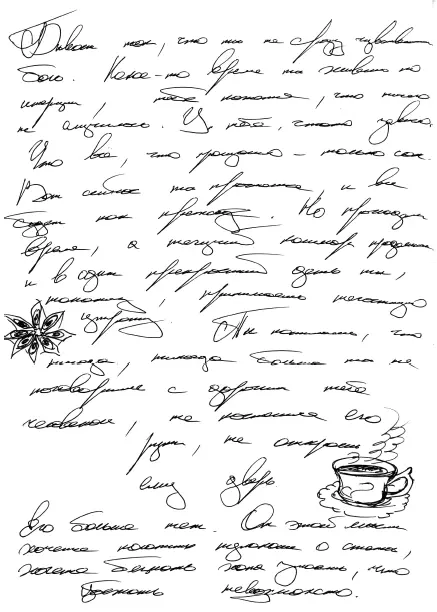 Бывает так, что ты не сразу чувствуешь
боль. Какое-то время ты живешь по
инерции, тебе кажется, что ничего
не случилось. И тебе,
Что все, что произошло – только сон.
Вот сейчас ты проснешься, и все
будет как прежде. Но проходит
время, а текущий кошмар продолжается
и в один прекрасный день ты,
наконец, принимаешь настоящую
утрату. Ты понимаешь, что
никогда, никогда больше ты не
поговоришь с дорогим тебе
человеком, не коснешься его
руки, не откроешь
ему дверь
Его больше нет. От этой мысли
хочется колотить кулаками о стены,
хочется бежать, хотя знаешь, что
бежать невозможно.